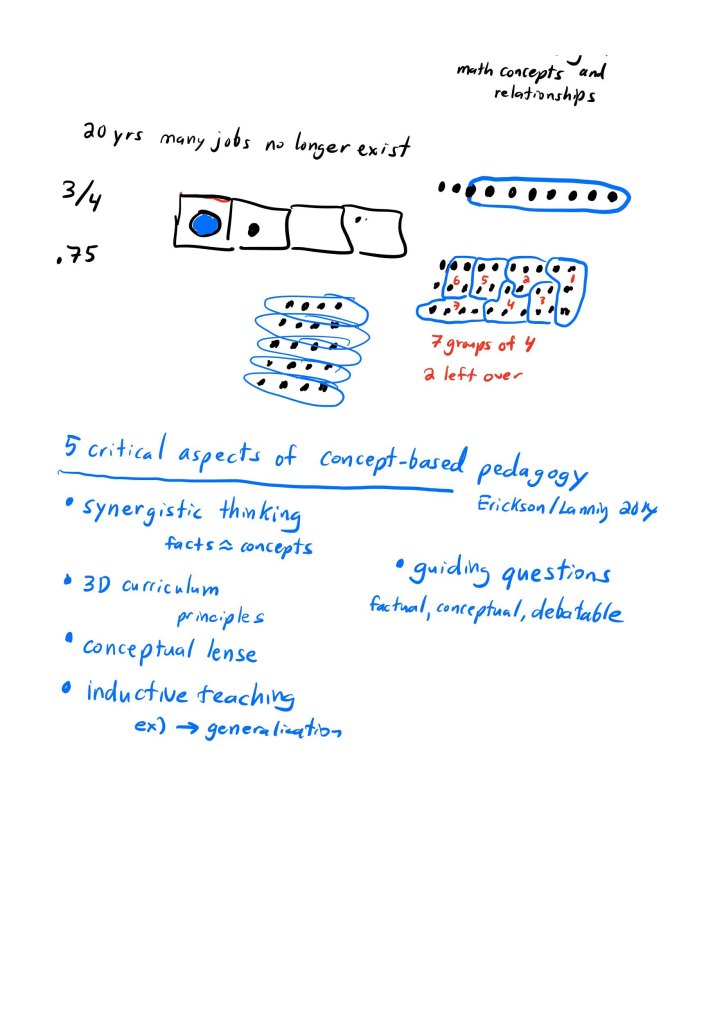 math concepts and
relationships
20 yrs many jobs no longer exist
3/4
.75
6 5 2 1
7 4 3
7 groups of 4
2 left over
5 critical aspects of concept-based pedagogy
Erickson/Lannig 2014
• synergistic thinking
facts ≈ concepts
• guiding questions
factual, conceptual, debatable
• 3D curriculum
principles
• conceptual lense
• inductive teaching
ex) → generalization